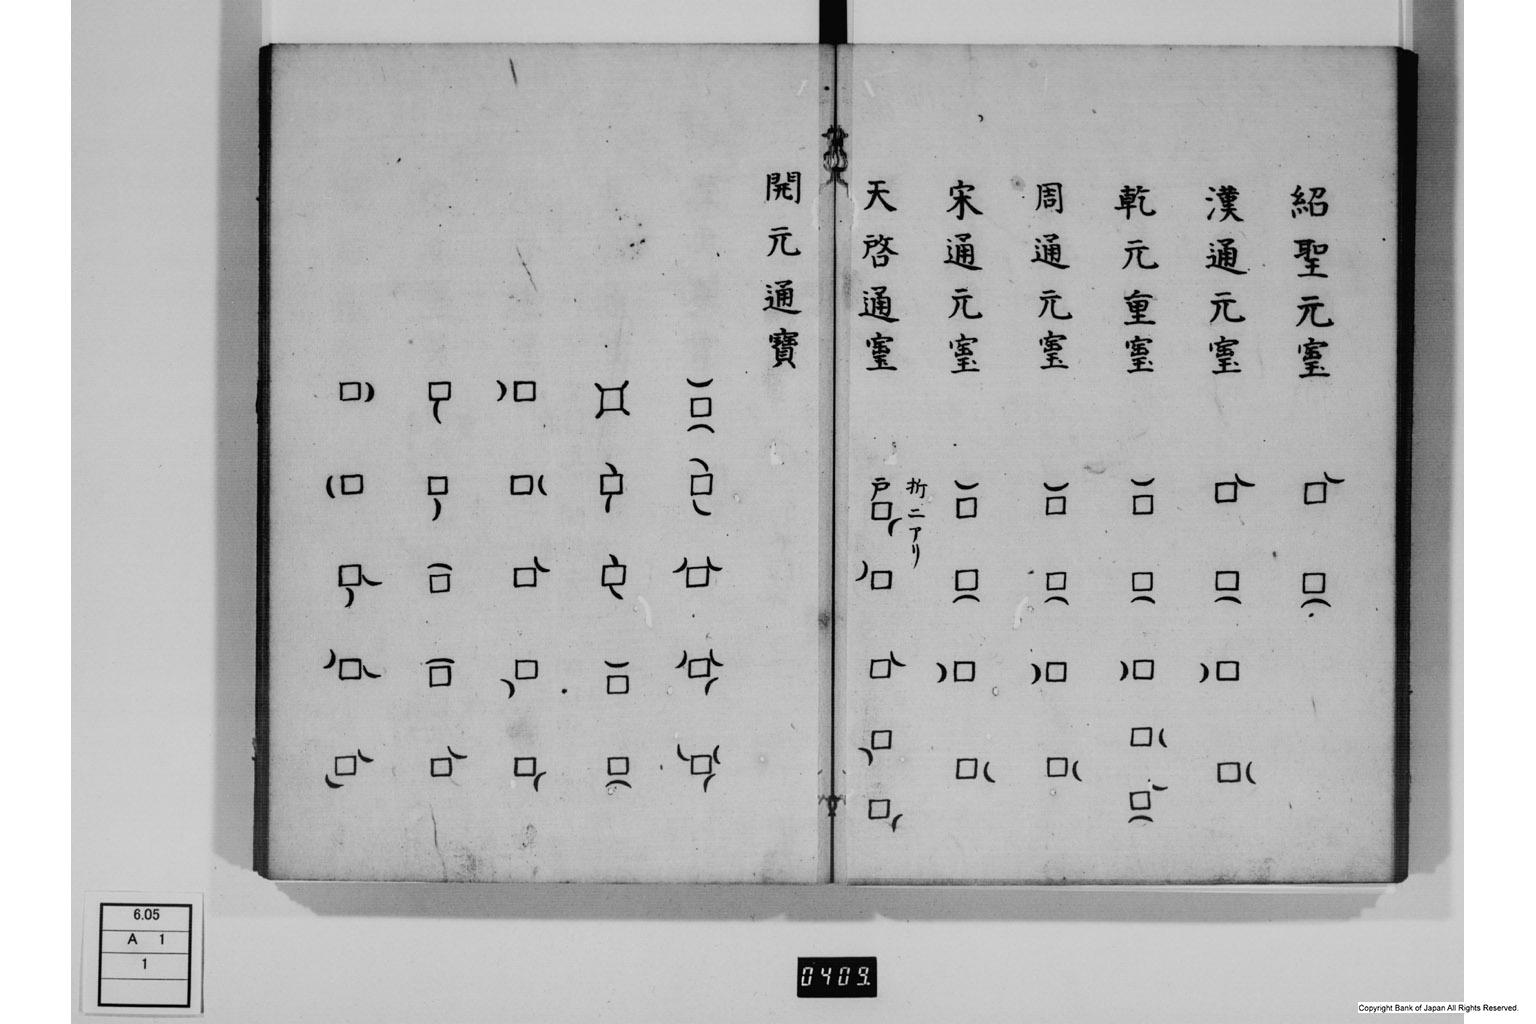 紹聖元寳
漢通元寳
乾元重寳
周通元寳
宋通元寳
天啓通寳
折二アリ
戸
開元通寶
6.05
A 1
1
0409
Copyright Bank of Japan All Rights Reserved.